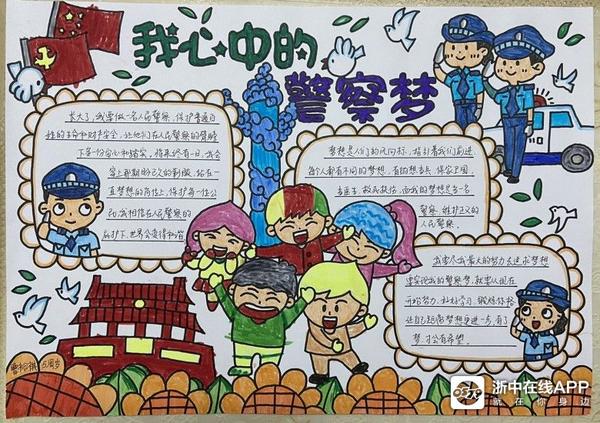 我心中的
警察梦
长大了,我要做一名人民警察,保护普通百
姓的生命和财产安全,让他们在人民警察的臂膀
下多一份安心和踏实。将来终有一日,我会
穿上那期盼已久的制服,站在
直梦想的岗位上,保护每一位公
民,我相信在人民警察的
庇护下,世界会变得和谐
梦想是人们的风向标,指引着我们前进
每个人都有不同的梦想,有的想当兵,保家卫国,
当医生,救死扶伤,而我的梦想是当一名
警察,维护正义的
人民警察。
我要尽我最大的努力去追求梦想
要实现我的警察梦,就要从现在
开始努力,好好学习,锻炼体格
让自己距离梦想更进一步,有了
梦,才会有希望。
浙中在线APP
就在你身边